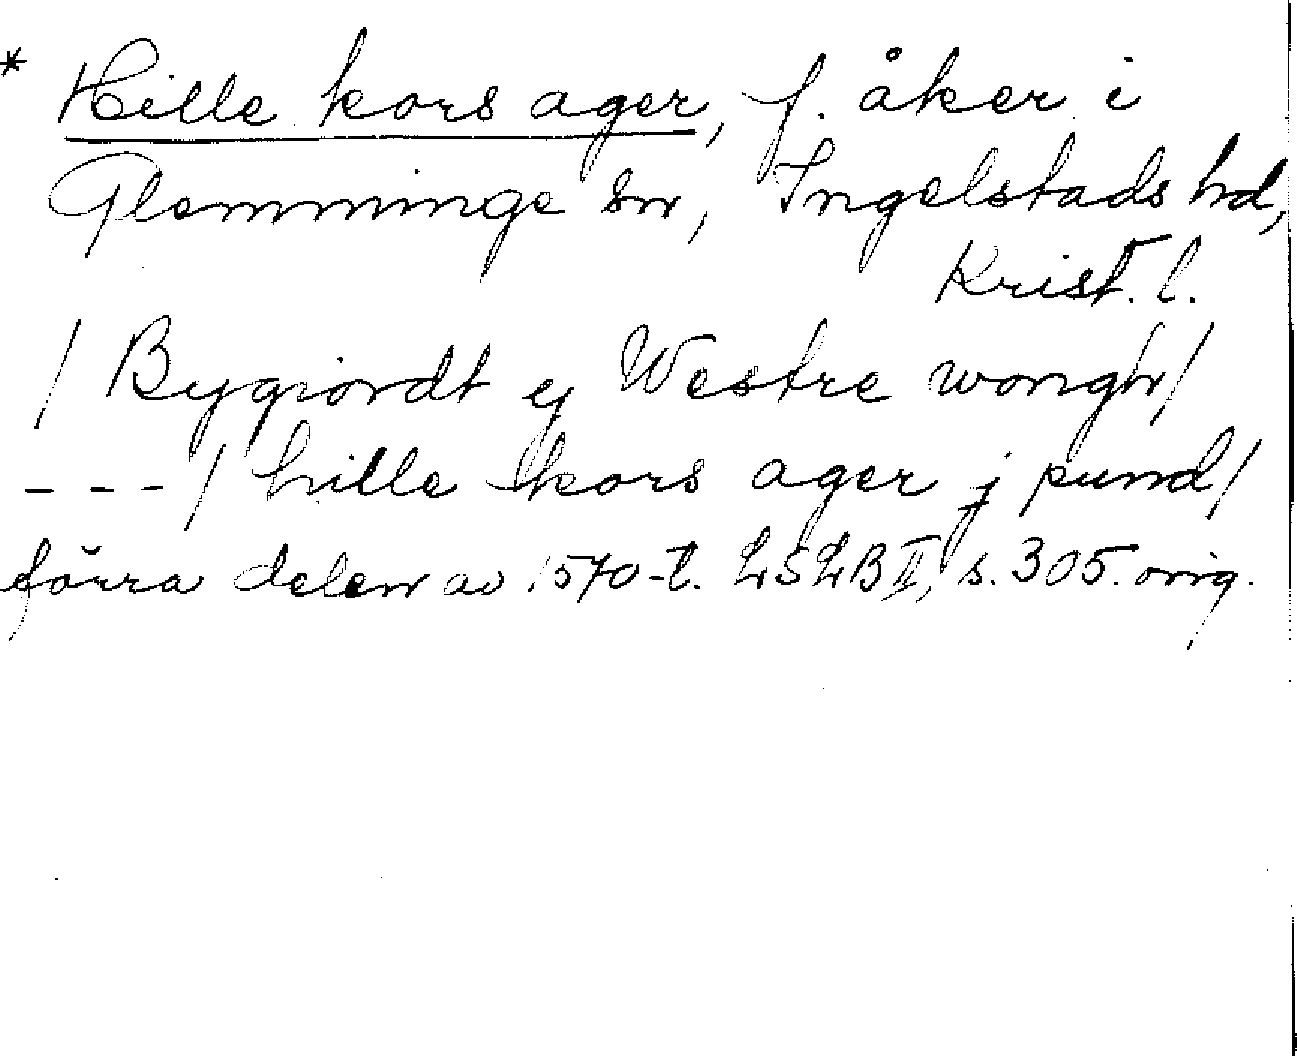 * Hille kors ager, f. åker i
Glemminge sn, Ingelstads hd,
Krist. l.
/ Bygiordt ij Westre wongh/
- - - / hille kors ager j pund/
förra delen av 1570-t. LSLB II, s. 305. orig.